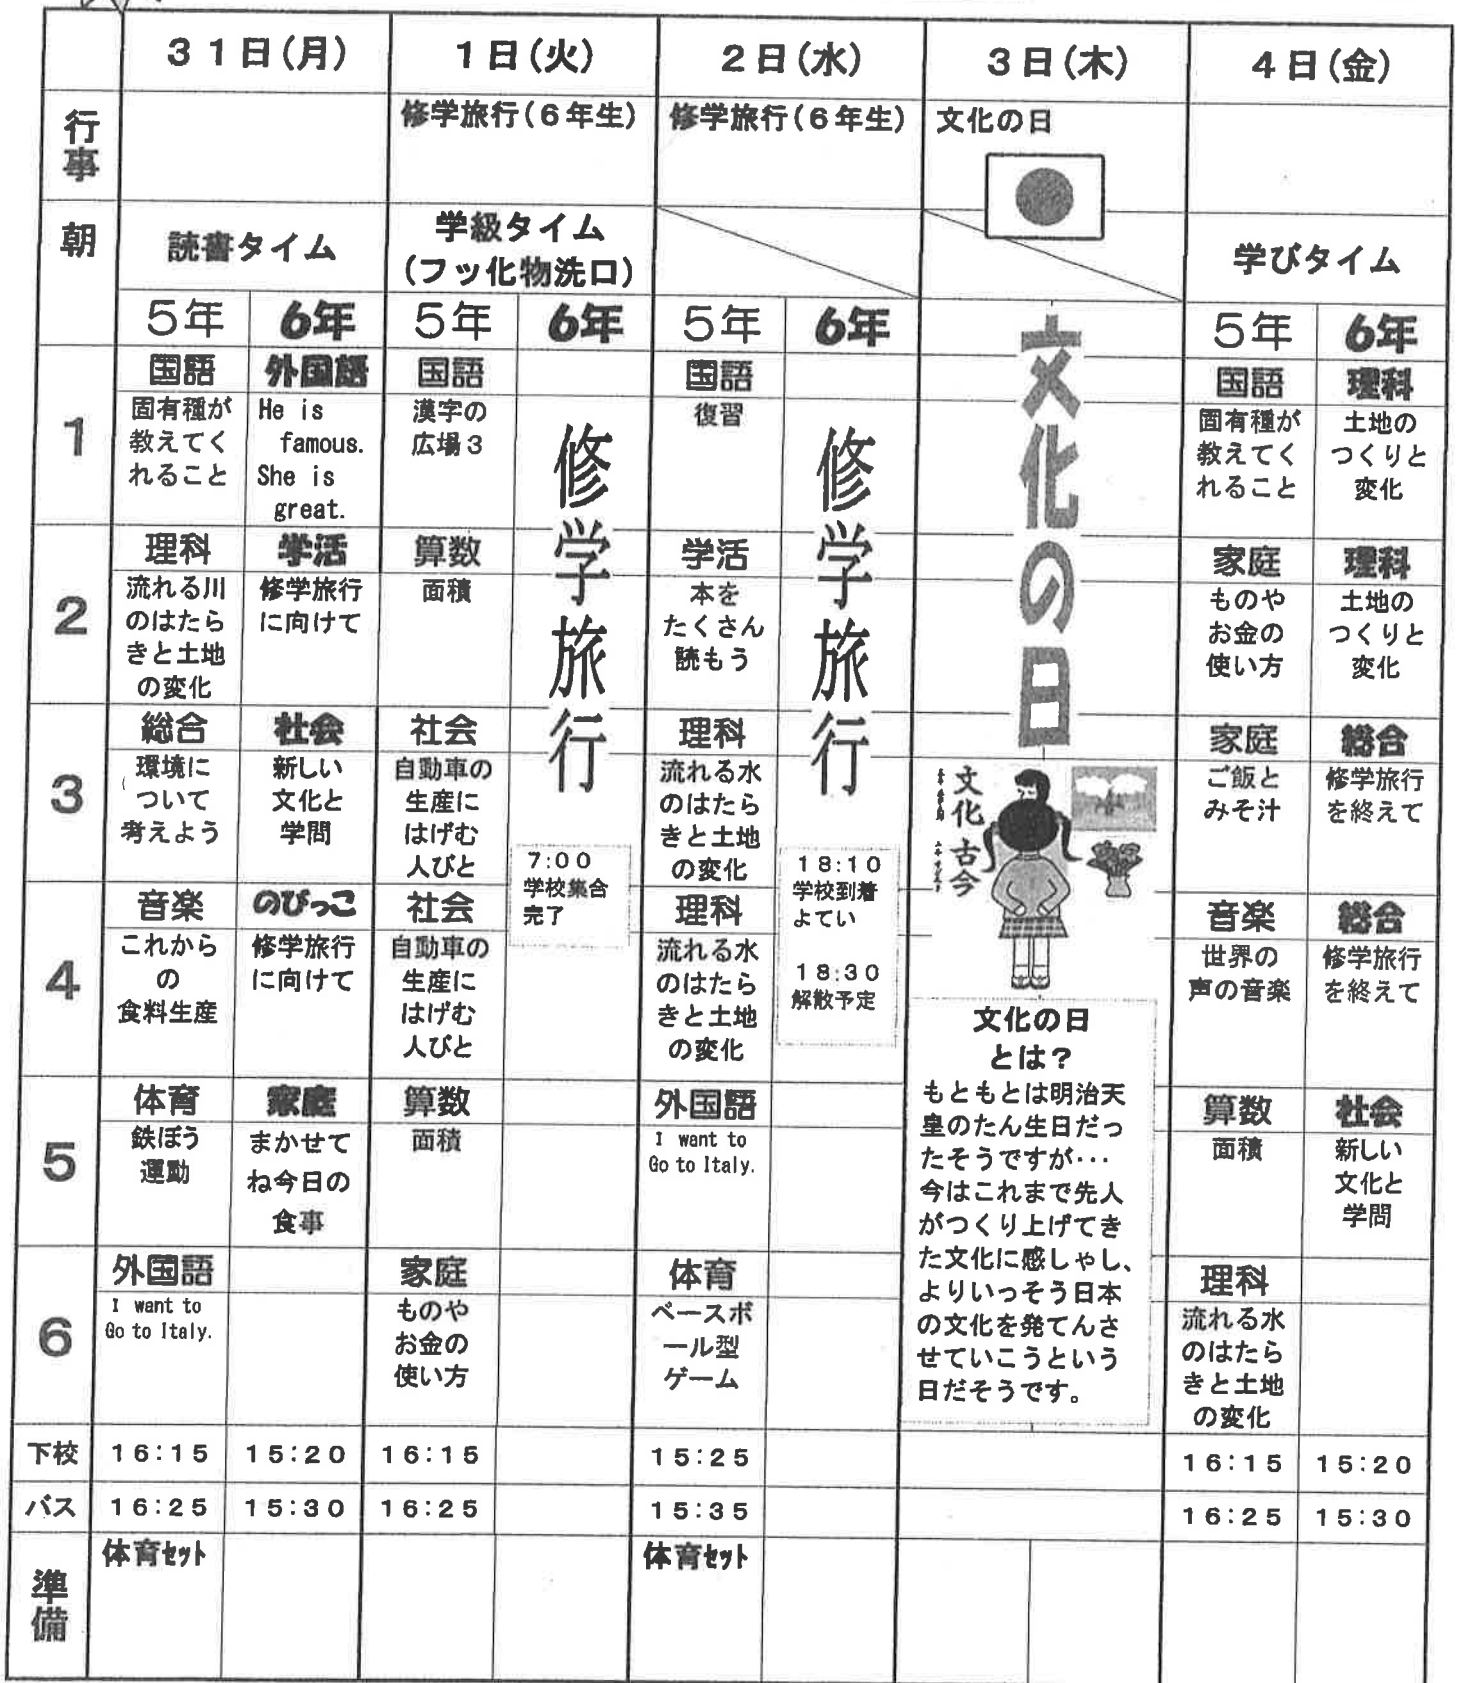 31日(月)
1日(火)
2日(水)
3日(木)
4日(金)
行事
修学旅行(6年生)
修学旅行(6年生)
文化の日
朝
読書タイム
学級タイム
(フッ化物洗口)
学びタイム
5年
6年
5年
6年
5年
6年
文化の日
5年
6年
1
国語
固有種が
教えてく
れること
外国語
He is
famous.
She is
great.
国語
漢字の
広場3
修学旅行
国語
復習
修学旅行
国語
固有種が
教えてく
れること
理科
土地の
つくりと
変化
2
理科
流れる川
のはたら
きと土地
の変化
学活
修学旅行
に向けて
算数
面積
学活
本を
たくさん
読もう
家庭
ものや
お金の
使い方
理科
土地の
つくりと
変化
3
総合
環境に
ついて
考えよう
社会
新しい
文化と
学問
社会
自動車の
生産に
はげむ
人びと
7:00
学校集合
完了
理科
流れる水
のはたら
きと土地
の変化
18:10
学校到着
よてい
18:30
解散予定
文化古今
家庭
ご飯と
みそ汁
総合
修学旅行
を終えて
4
音楽
これから
の
食料生産
のびっこ
修学旅行
に向けて
社会
自動車の
生産に
はげむ
人びと
理科
流れる水
のはたら
きと土地
の変化
音楽
世界の
声の音楽
総合
修学旅行
を終えて
文化の日
とは?
もともとは明治天
皇のたん生日だっ
たそうですが・・・
今はこれまで先人
がつくり上げてき
た文化に感しゃし、
よりいっそう日本
の文化を発てんさ
せていこうという
日だそうです。
5
体育
鉄ぼう
運動
家庭
まかせて
ね今日の
食事
算数
面積
外国語
I want to
Go to Italy.
算数
面積
社会
新しい
文化と
学問
6
外国語
I want to
Go to Italy.
家庭
ものや
お金の
使い方
体育
ベースボ
ール型
ゲーム
理科
流れる水
のはたら
きと土地
の変化
下校
16:15
15:20
16:15
15:25
16:15
15:20
バス
16:25
15:30
16:25
15:35
16:25
15:30
準備
体育セット
体育セット